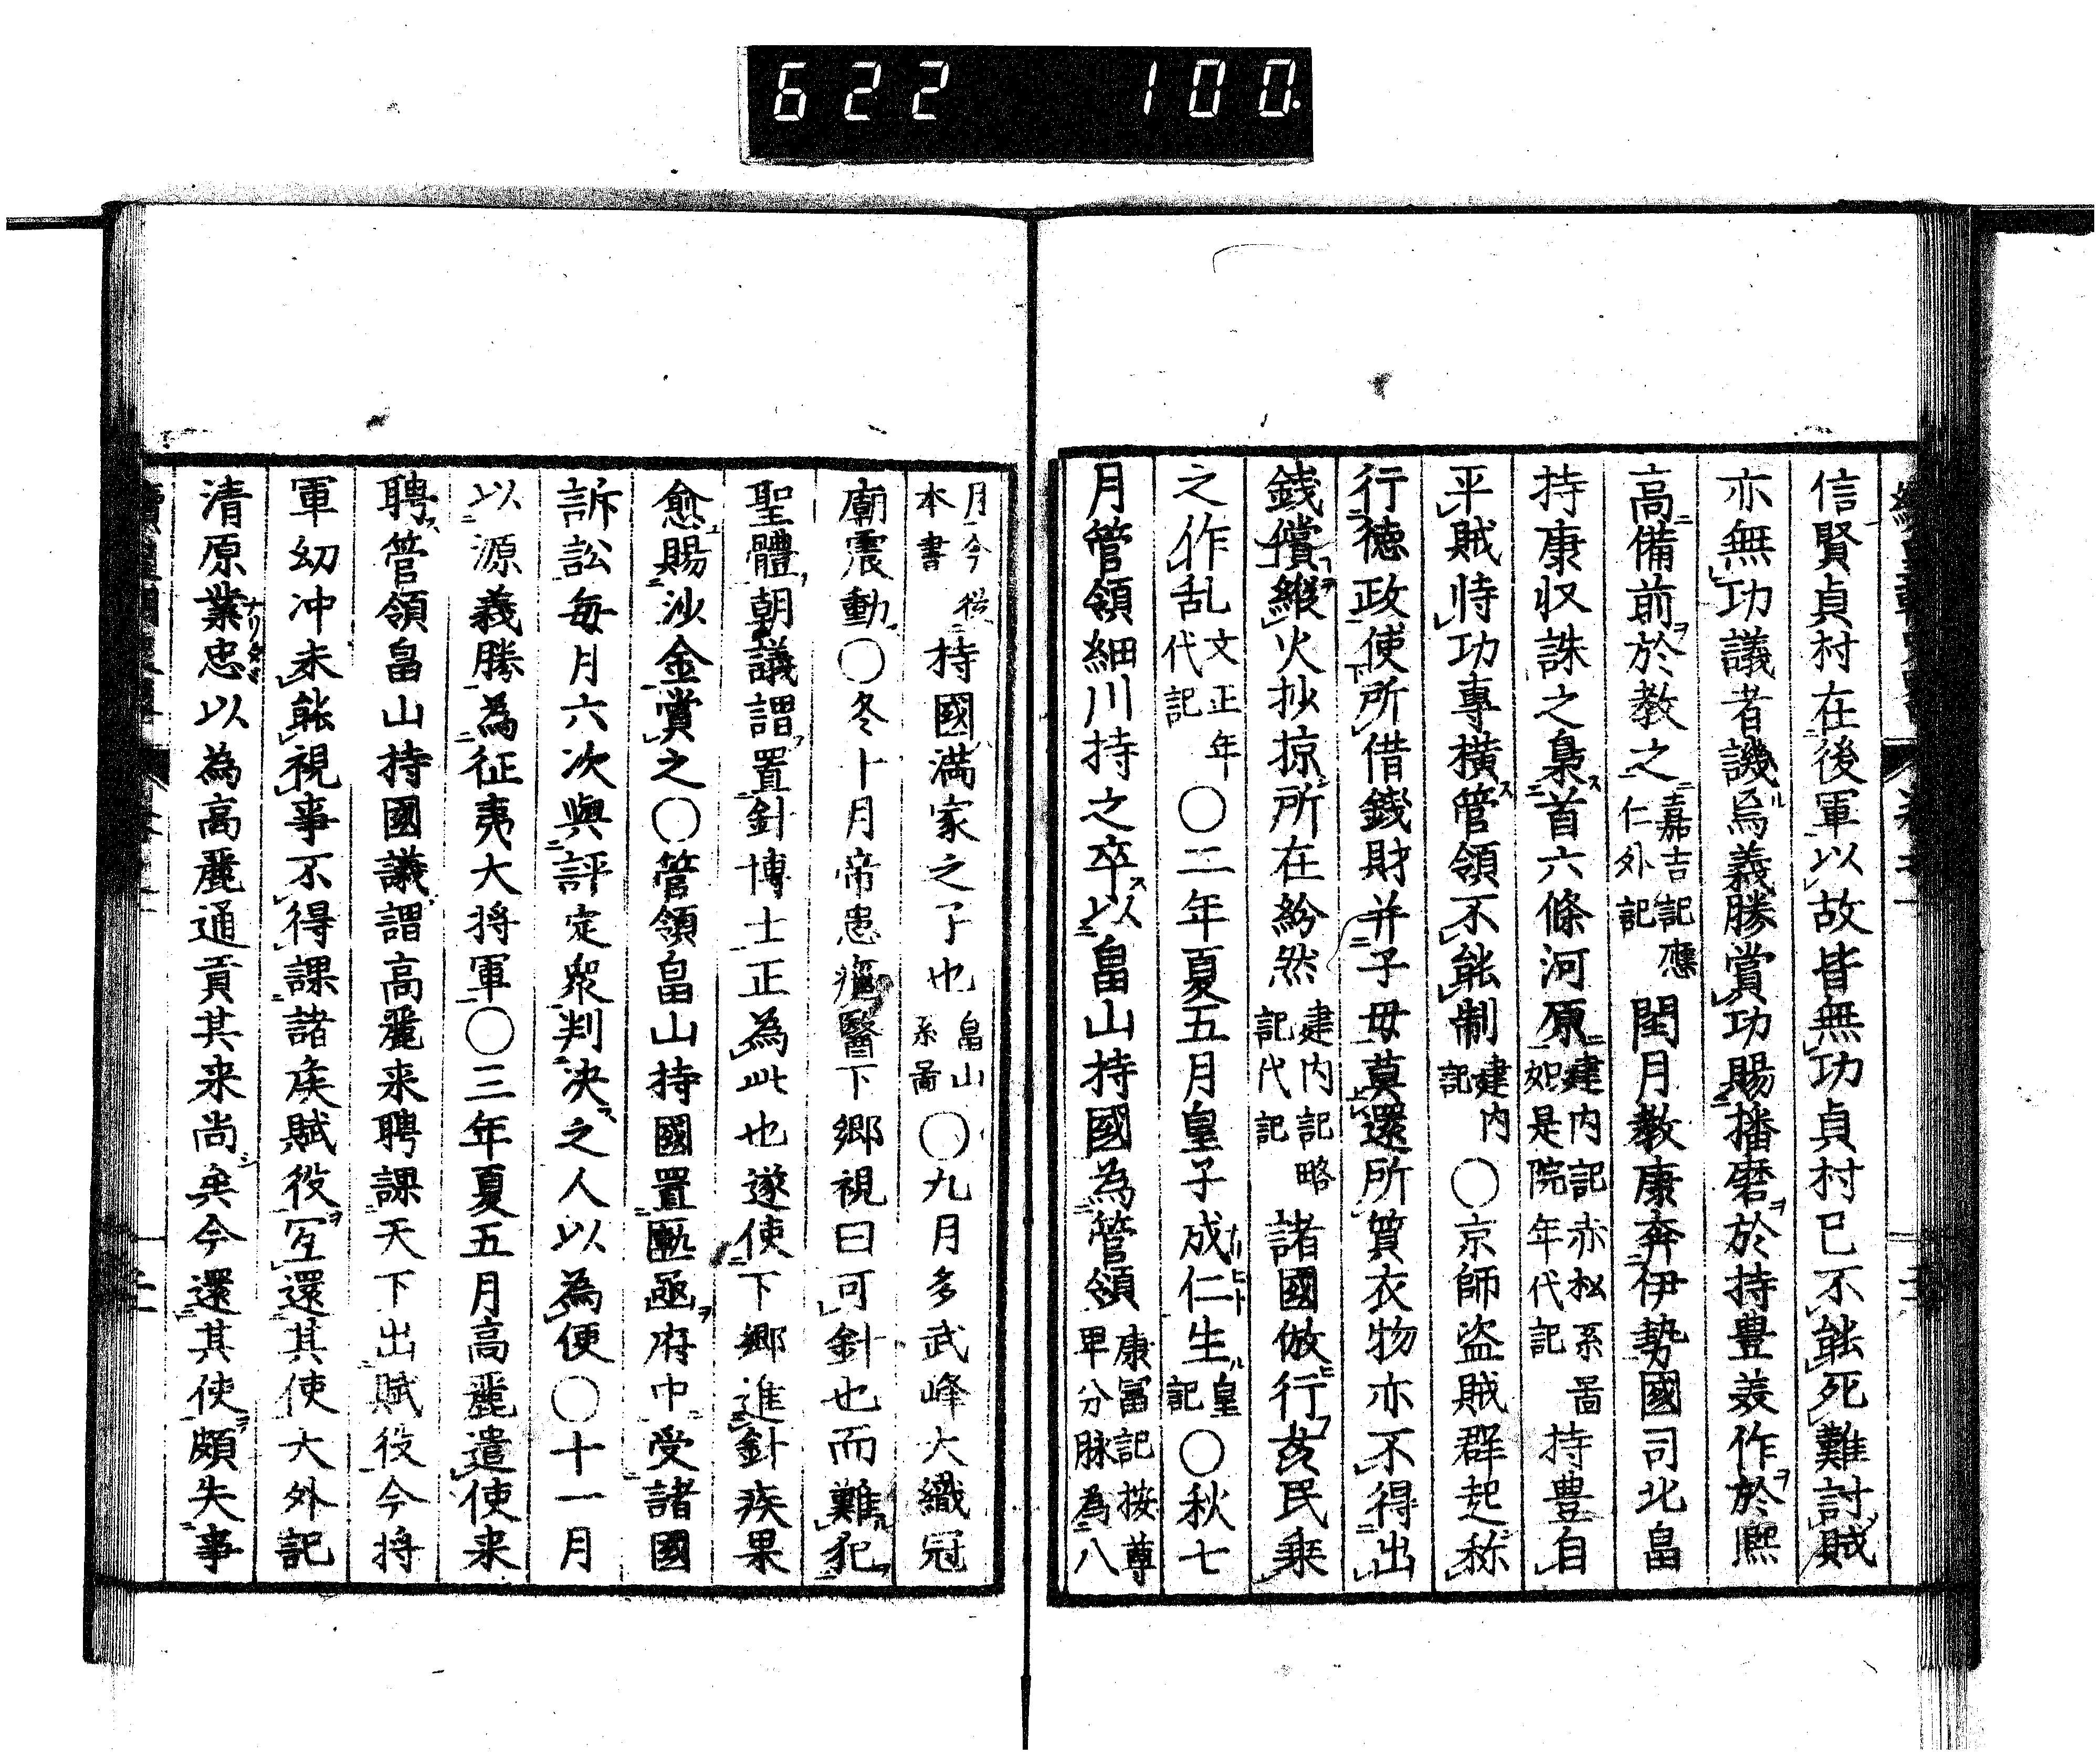 622 100.
信賢貞村在後軍以故皆無功貞村已不能死難討賊
亦無功議者譏焉義勝賞功賜播磨於持豊美作於熈
高備前於教之嘉吉記應仁外記閏月教康奔伊勢國司北畠
持康収誅之梟首六條河原建内記赤松系啚如是院年代記持豊自
平賊恃功專横管領不能制建内記〇京師盗賊群起称
行徳政使所借銭財并子母莫還所質衣物亦不得出
銭償縦火抄掠所在紛然建内記略記代記諸國倣行莠民乗
之作乱文正年代記〇二年夏五月皇子成仁生皇記〇秋七
月管領細川持之卒以畠山持國為管領康富記按尊卑分脉為八
月今從本書持國満家之子也畠山系啚〇九月多武峰大織冠
廟震動〇冬十月帝患瘧醫下郷視曰可針也而難犯
聖體朝議謂置針博士正為此也遂使下郷進針疾果
愈賜沙金賞之〇管領畠山持國置匭函府中受諸國
訴訟毎月六次與評定衆判决之人以為便〇十一月
以源義勝為征夷大将軍〇三年夏五月高麗遣使来
聘管領畠山持國議謂高麗来聘課天下出賦役今将
軍幼冲未能視事不得課諸矦賦役冝還其使大外記
清原業忠以為高麗通貢其来尚矣今還其使頗失事